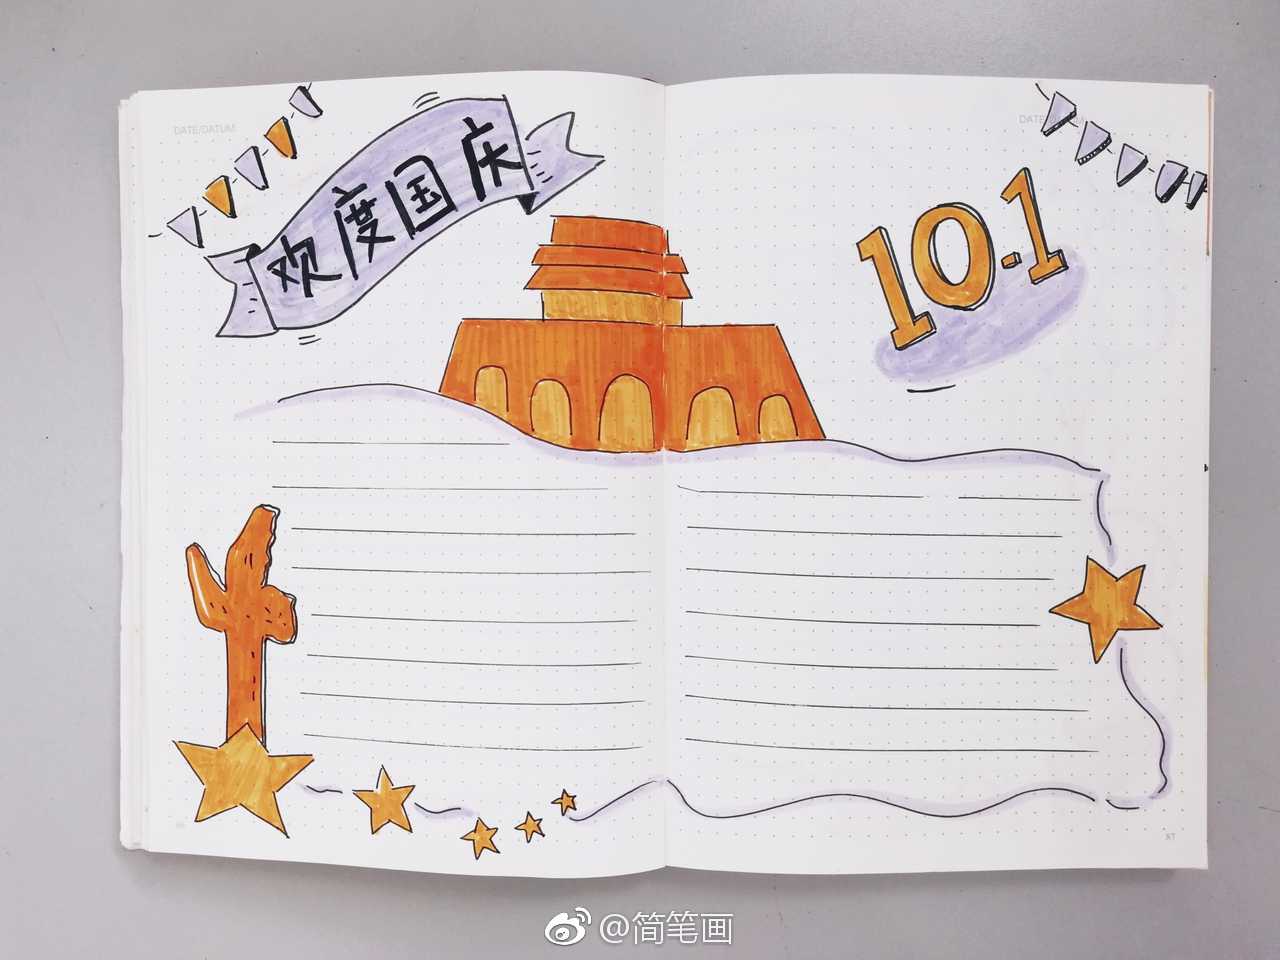 DATE/DATUM
欢度国庆
10.1
87
@简笔画